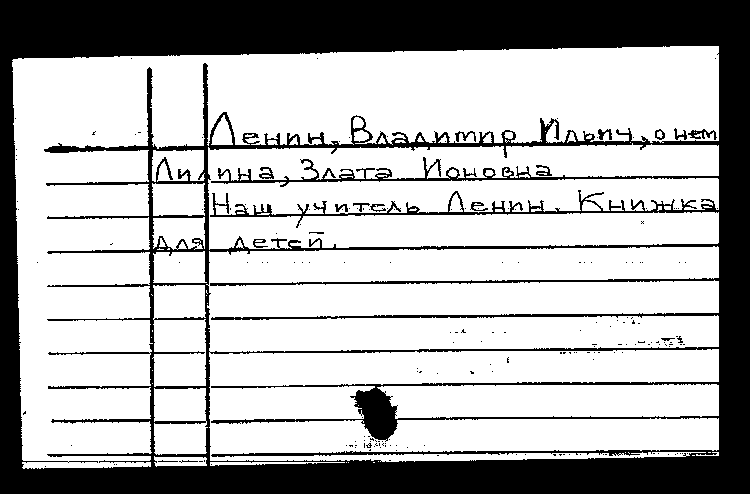 Ленин, Владимир Ильич, о нем
Лилина, Злата Ионовна.
Наш учитель Ленин. Книжка
для детей.